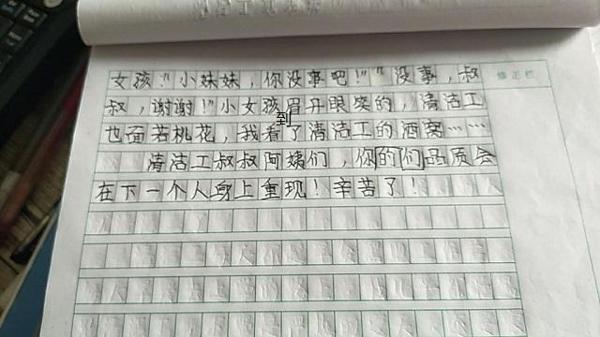 女孩："小妹妹，你没事吧！""没事，叔
叔，谢谢！"小女孩眉开眼笑的，清洁工
也面若桃花，我看到了清洁工的酒窝……
清洁工叔叔阿姨们，你的们品质会
在下一个人身上重现！辛苦了！
修正栏